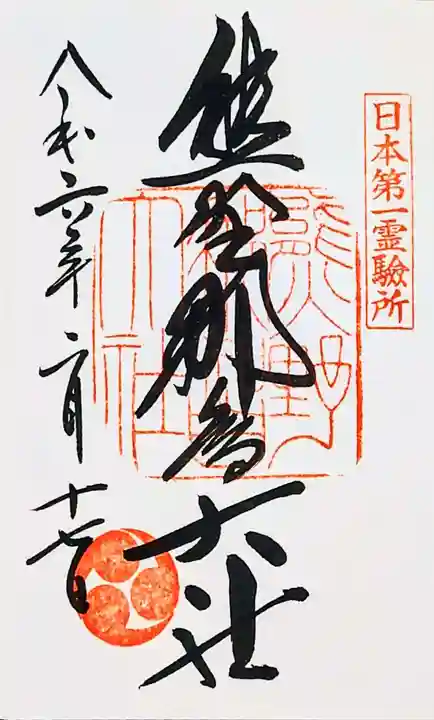 日本第一霊験所
熊野那智大社
熊野那智大社
令和六年二月十七日